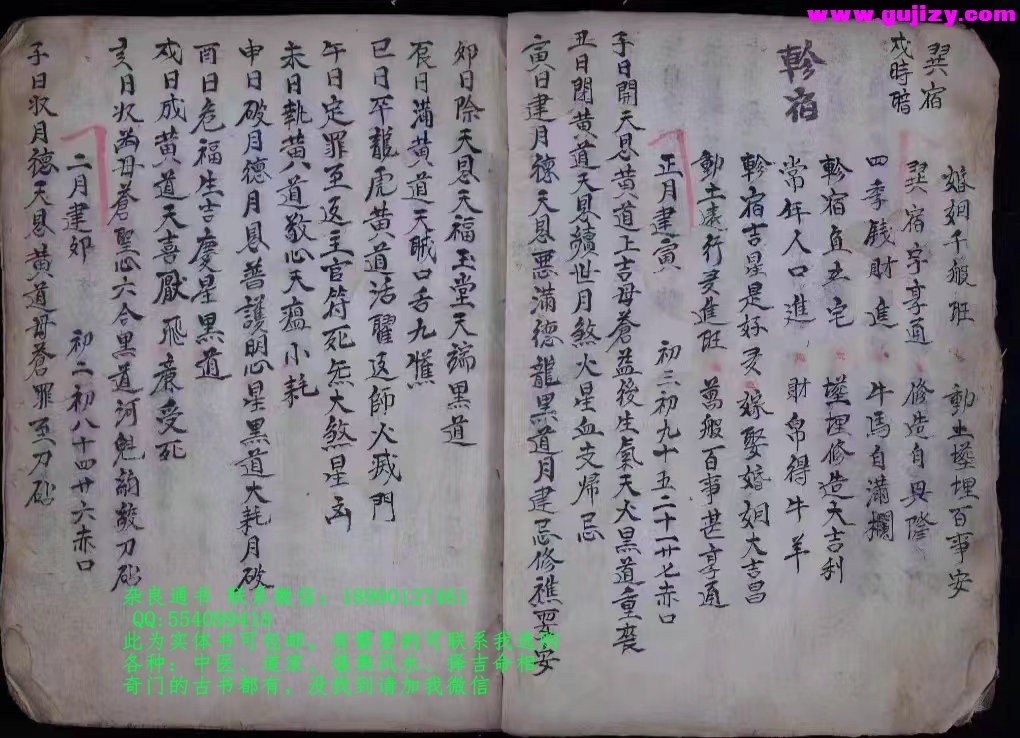 www.gujizy.com
巽宿
戌時暗
婚姻千般旺 動土塟埋百事安
巽宿亨享通 修造自興隆
四季錢財進 牛馬自滿欄
軫宿
軫宿直五宅 塟埋修造大吉利
常年人口進 財帛得牛羊
軫宿吉星是好 嫁娶婚姻大吉昌
動土遠行更進旺 萬般百事甚亨通
正月建寅 初三初九十五二十一廿七赤口
子日開天恩黄道上吉母蒼益後生氣天火黑道重喪
丑日閉黄道天恩續世月煞火星血支歸忌
寅日建月德天恩悪滿德龍黑道月建忌修
卯日除天恩天福玉堂天瑞黑道
辰日滿黄道天賊口舌九焦
巳日平龍虎黄道活曜返師火滅門
午日定罪至返主官符死炁大煞星凶
未日執黄道敬心天瘟小耗
申日破月德月恩普護明心星黑道大耗月破
酉日危福生吉慶星黑道
戌日成黄道天喜厭飛亷受死
亥日收母蒼聖心六合黑道河魁鈎敲刀砧
二月建卯 初二初八十四廿六赤口
子日收月德天恩黄道母蒼罪至刀砧
杂良通书 联系微信：18990127461
QQ:554099418
此为实体书可包邮，有需要的可联系我选购
各种：中医、道家、堪舆风水、择吉命相
奇门的古书都有，没找到请加我微信